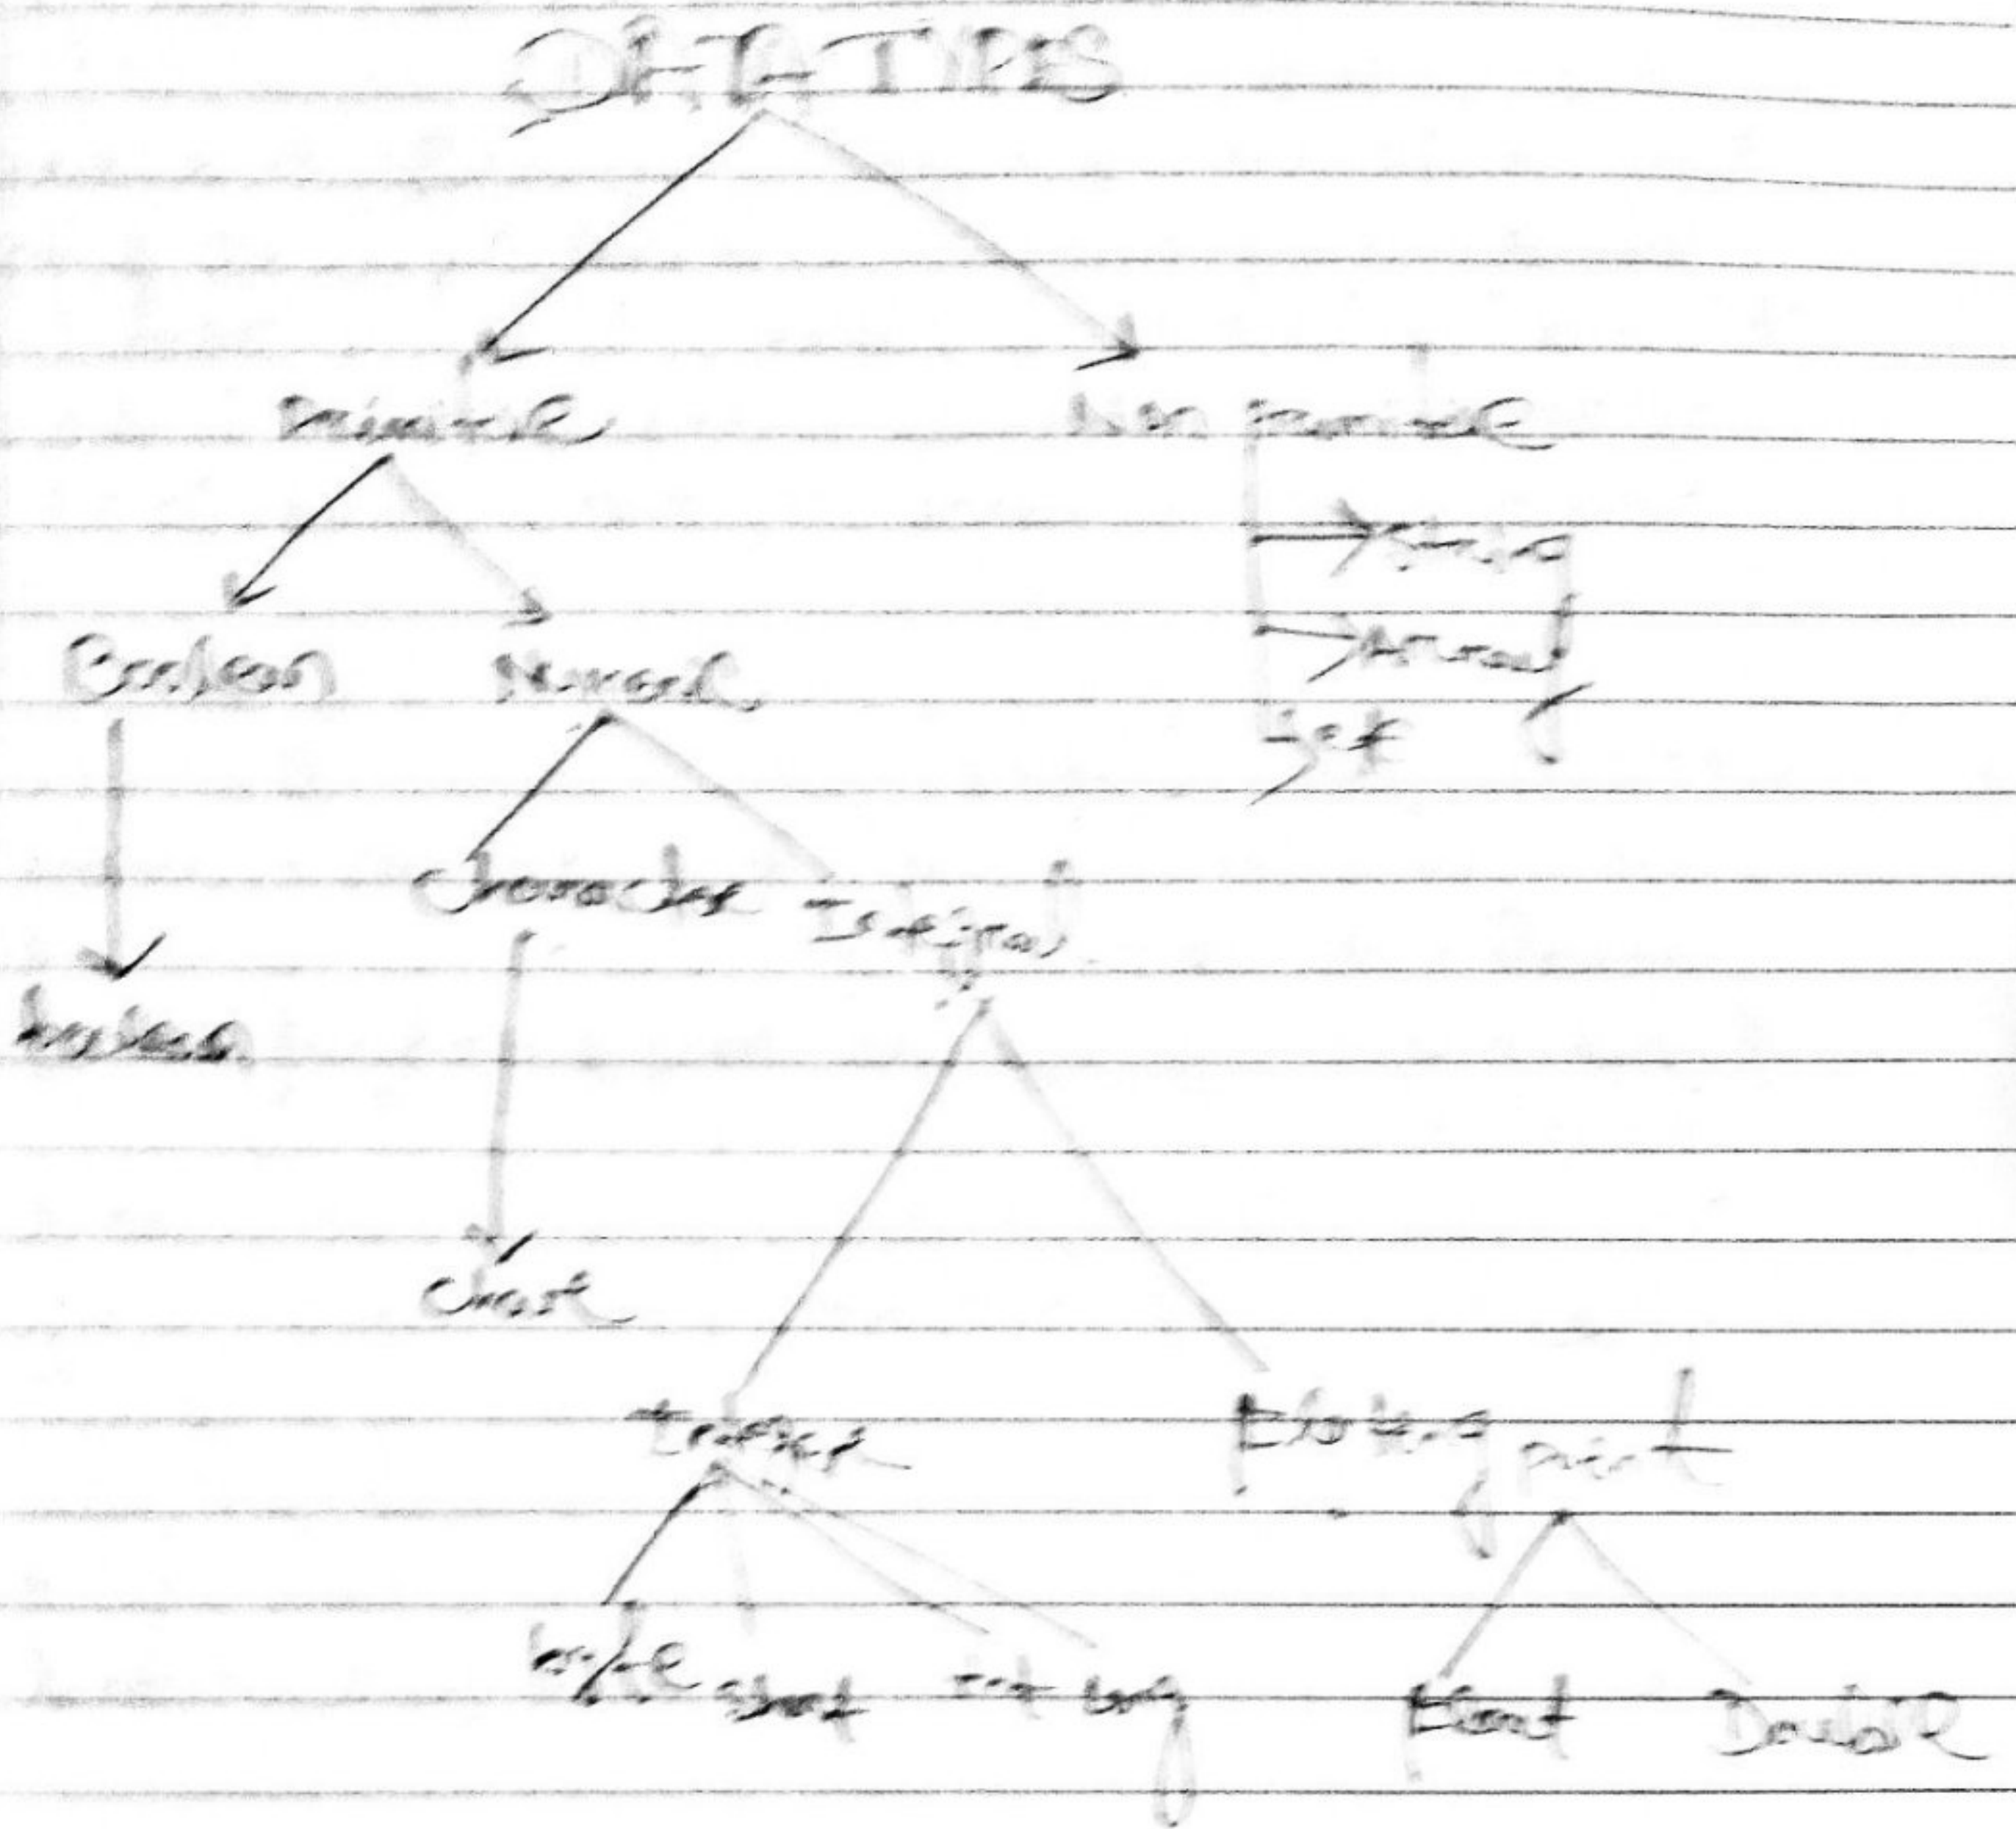 DATA TYPES
Primitive Non primitive
String
Boolean Numeric Array
Character Integral
boolean
Char
Integer Floating point
byte short int long Float Double